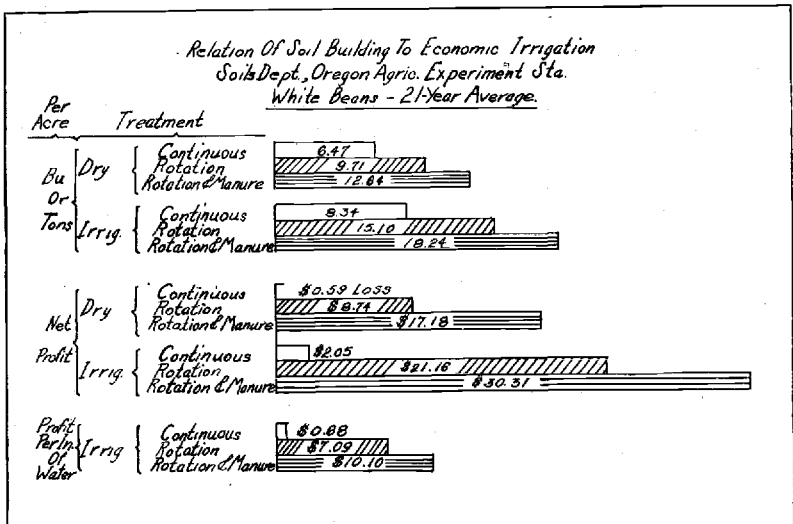 Relation Of Soil Building To Economic Irrigation
Soils Dept., Oregon Agric. Experiment Sta.
White Beans - 21-Year Average.
Per
Acre
Treatment
Bu
Or
Tons
Dry
Continuous 6.47
Rotation 9.71
Rotation & Manure 12.64
Irrig.
Continuous 8.34
Rotation 15.10
Rotation & Manure 18.24
Net
Profit
Dry
Continuous $0.59 Loss
Rotation $8.74
Rotation & Manure $17.18
Irrig.
Continuous $2.05
Rotation $21.16
Rotation & Manure $30.31
Profit
Per In.
Of
Water
Irrig
Continuous $0.68
Rotation $7.09
Rotation & Manure $10.10